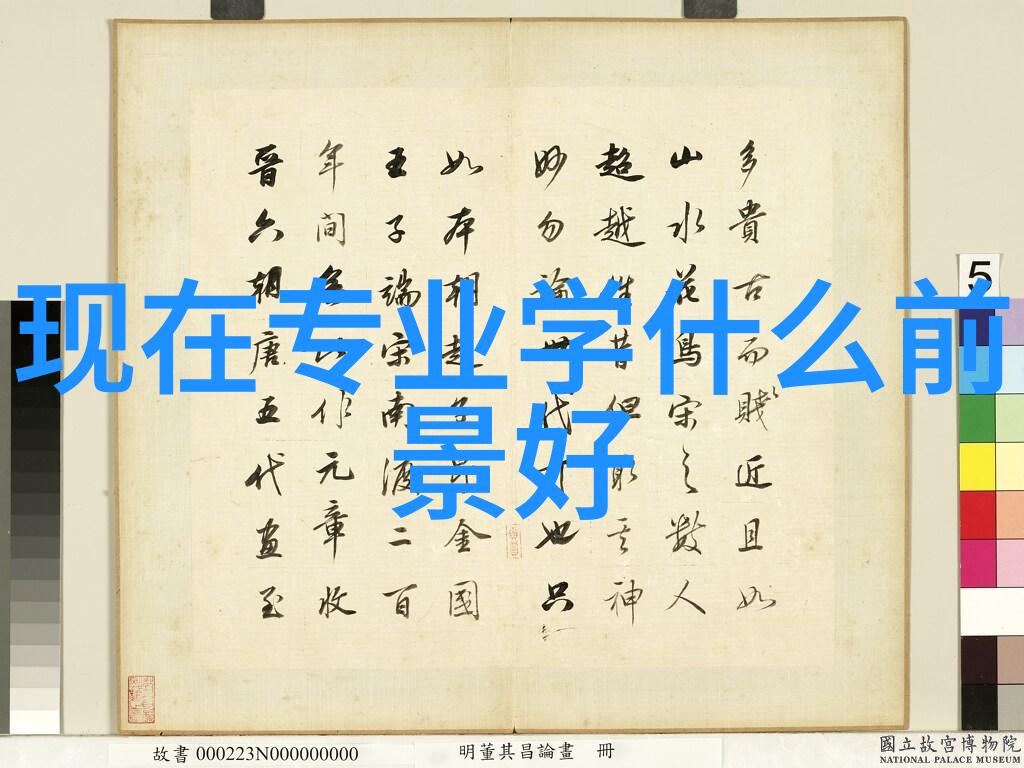 现在专业学什么前
景好
多貴古而賤近且如
山水花鳥宋之數人
超越往昔但取其神
妙勿論世代可也只
如本朝趙子昂金國
王子端宋南渡二百
年間無此作元章收
晉六朝唐五代畫至
5
故書 000223N000000000
明董其昌論畫 冊
國立故宮博物院
NATIONAL PALACE MUSEUM